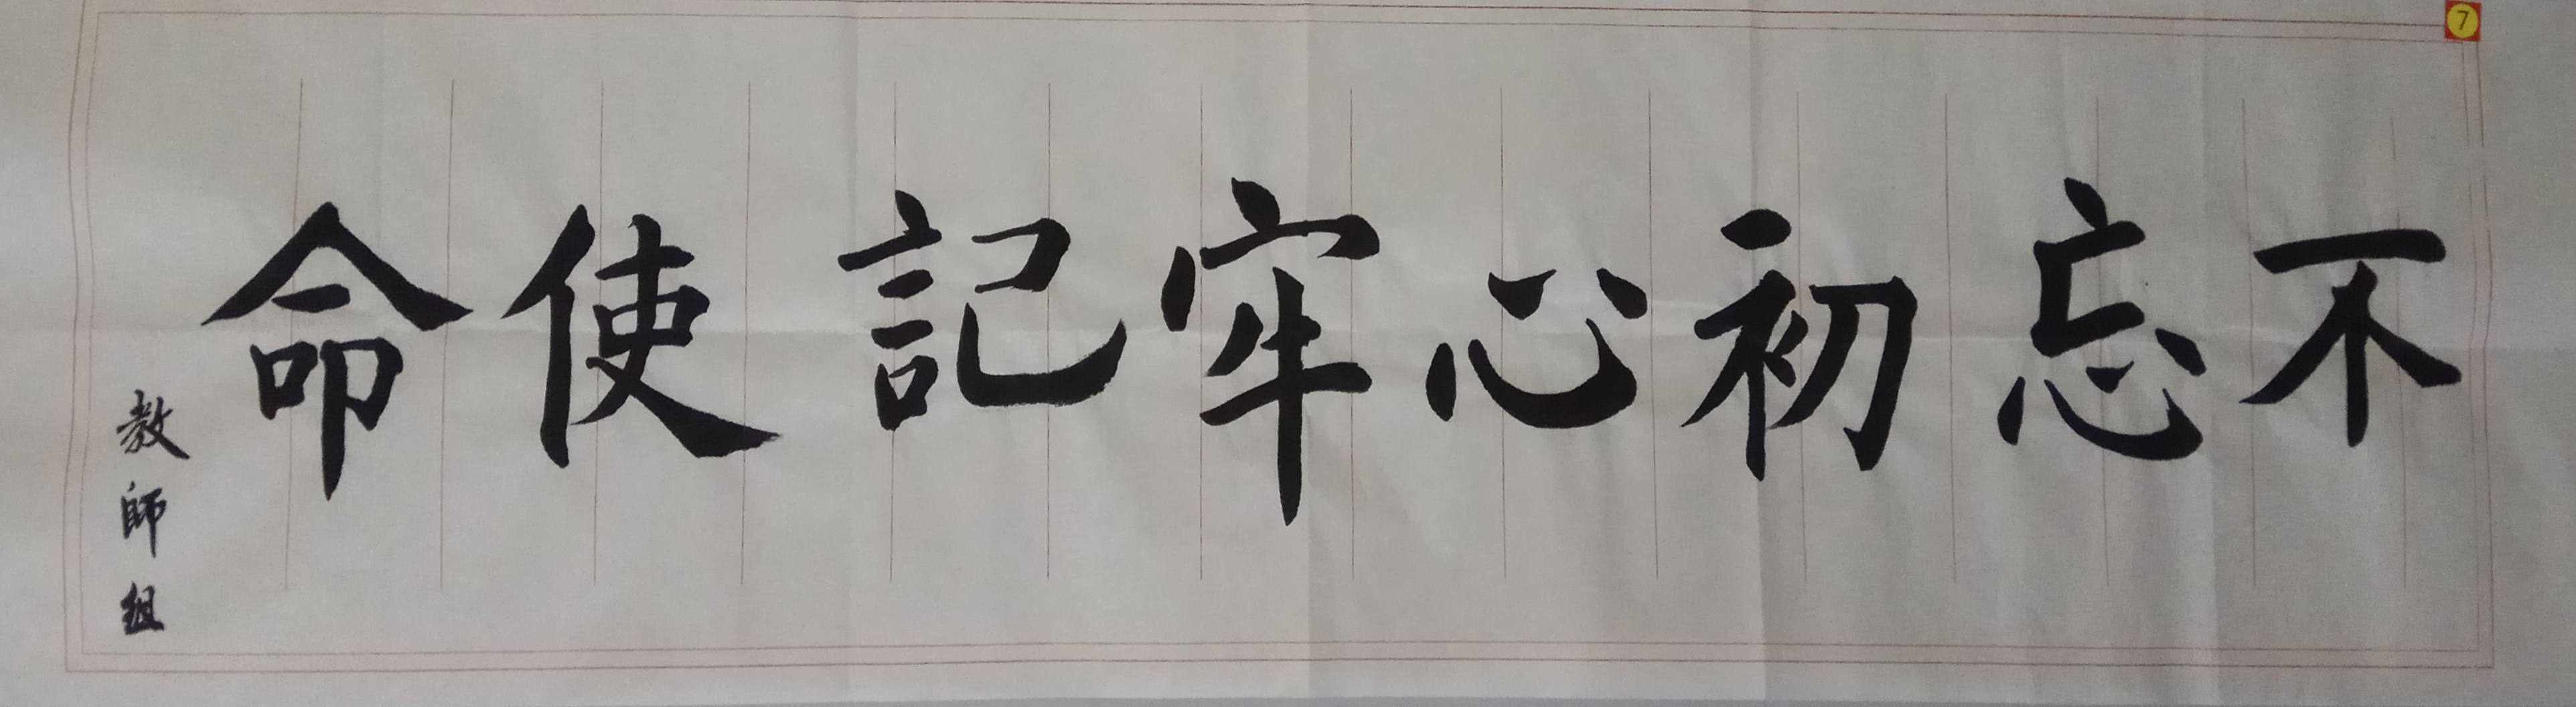 不忘初心牢記使命
教師組
7